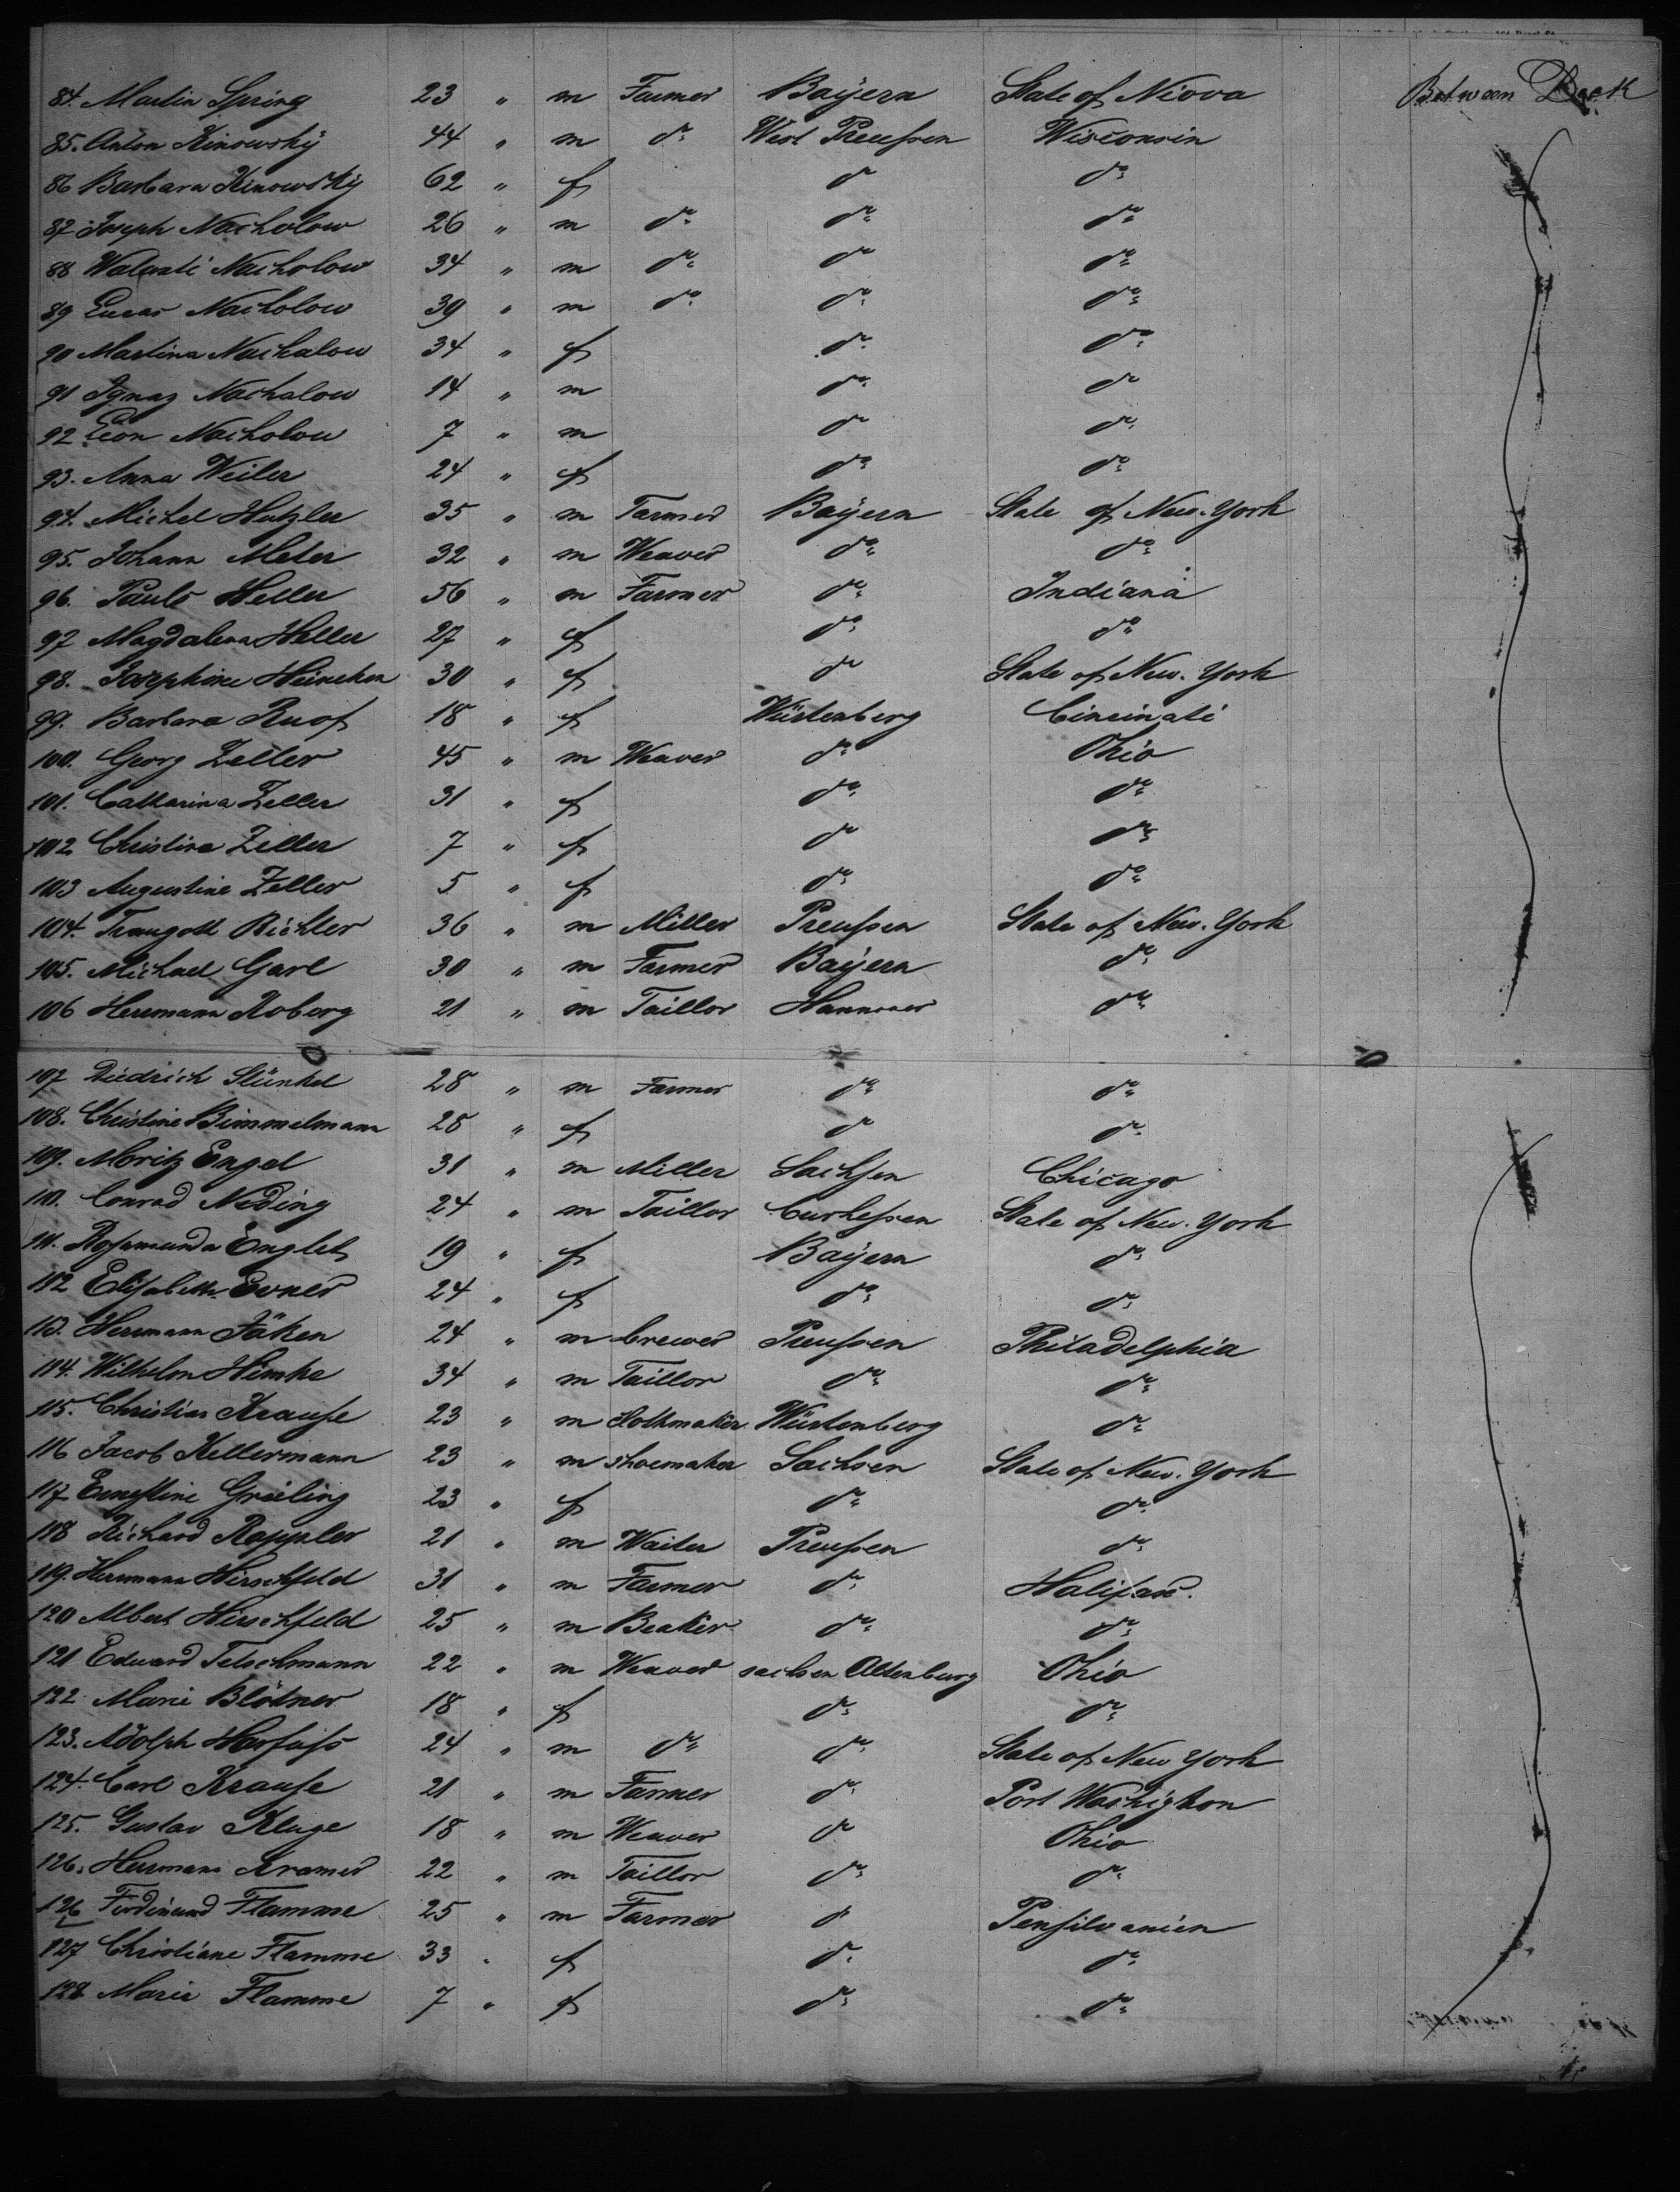 84. Martin Spring 23 " m Farmer Bayern State of Niova Between Deck
85. Anton Kinowsky 44 " m do West Preußen Wisconsin
86 Barbara Kinowsky 62 " f do do
87 Joseph Nacholow 26 " m do do do
88 Walenti Nacholow 34 " m do do do
89 Lucas Nacholow 39 " m do do do
90 Martina Nachalow 34 " f do do
91 Ignaz Nachalow 14 " m do do
92 Leon Nacholow 7 " m do do
93. Anna Weiler 24 " f do do
94. Michel Hutzler 35 " m Farmer Bayern State of New-York
95. Johann Meler 32 " m Weaver do do
96. Paulo Heller 56 " m Farmer do Indiana
97 Magdalena Heller 27 " f do do
98. Josephine Heinechen 30 " f do State of New-York
99. Barbara Ruof 18 " f Würtenberg Cincinati
100. Georg Zeller 45 " m Weaver do Ohio
101. Catharina Zeller 31 " f do do
102 Christine Zeller 7 " f do do
103 Augustine Zeller 5 " f do do
104. Traugott Richter 36 " m Miller Preußen State of New-York
105. Michael Garl 30 " m Farmer Bayern do
106 Herrmann Roberg 21 " m Taillor Hannover do
107 Diedrich Stünkel 28 " m Farmer do do
108. Christine Bimmelmann 28 " f do do
109. Moritz Engel 31 " m Miller Sachsen Chicago
110. Conrad Neding 24 " m Taillor Curhessen State of New-York
111. Rosamunda Englet 19 " f Bayern do
112 Elisabeth 24 " f do do
113. Herrmann Jäken 24 " m brewer Preußen Philadelphia
114. Wilhelm Himke 34 " m Taillor do do
115. Christian Krause 23 " m Clothmaker Würtenberg do
116 Jacob Kellermann 23 " m shoemaker Sachsen State of New-York
117 Ernestine Greiling 23 " f do do
118 Richard Rappler 21 " m Waiter Preußen do
119. Herrmann Hirschfeld 31 " m Farmer do Halifax.
120 Albert Hirschfeld 25 " m Beaker do do
121 Eduard Tetschmann 22 " m Weaver sachsen Altenburg Ohio
122 Marie Blötner 18 " f do do
123. Adolph Harfuss 24 " m do do State of New York
124. Carl Krause 21 " m Farmer do Port Washigton
125. Gustav Kluge 18 " m Weaver do Ohio
126. Herrmann Kramer 22 " m Taillor do do
126 Ferdinand Flamme 25 " m Farmer do Pensilvanien
127 Christiane Flamme 33 " f do do
128 Marie Flamme 7 " f do do